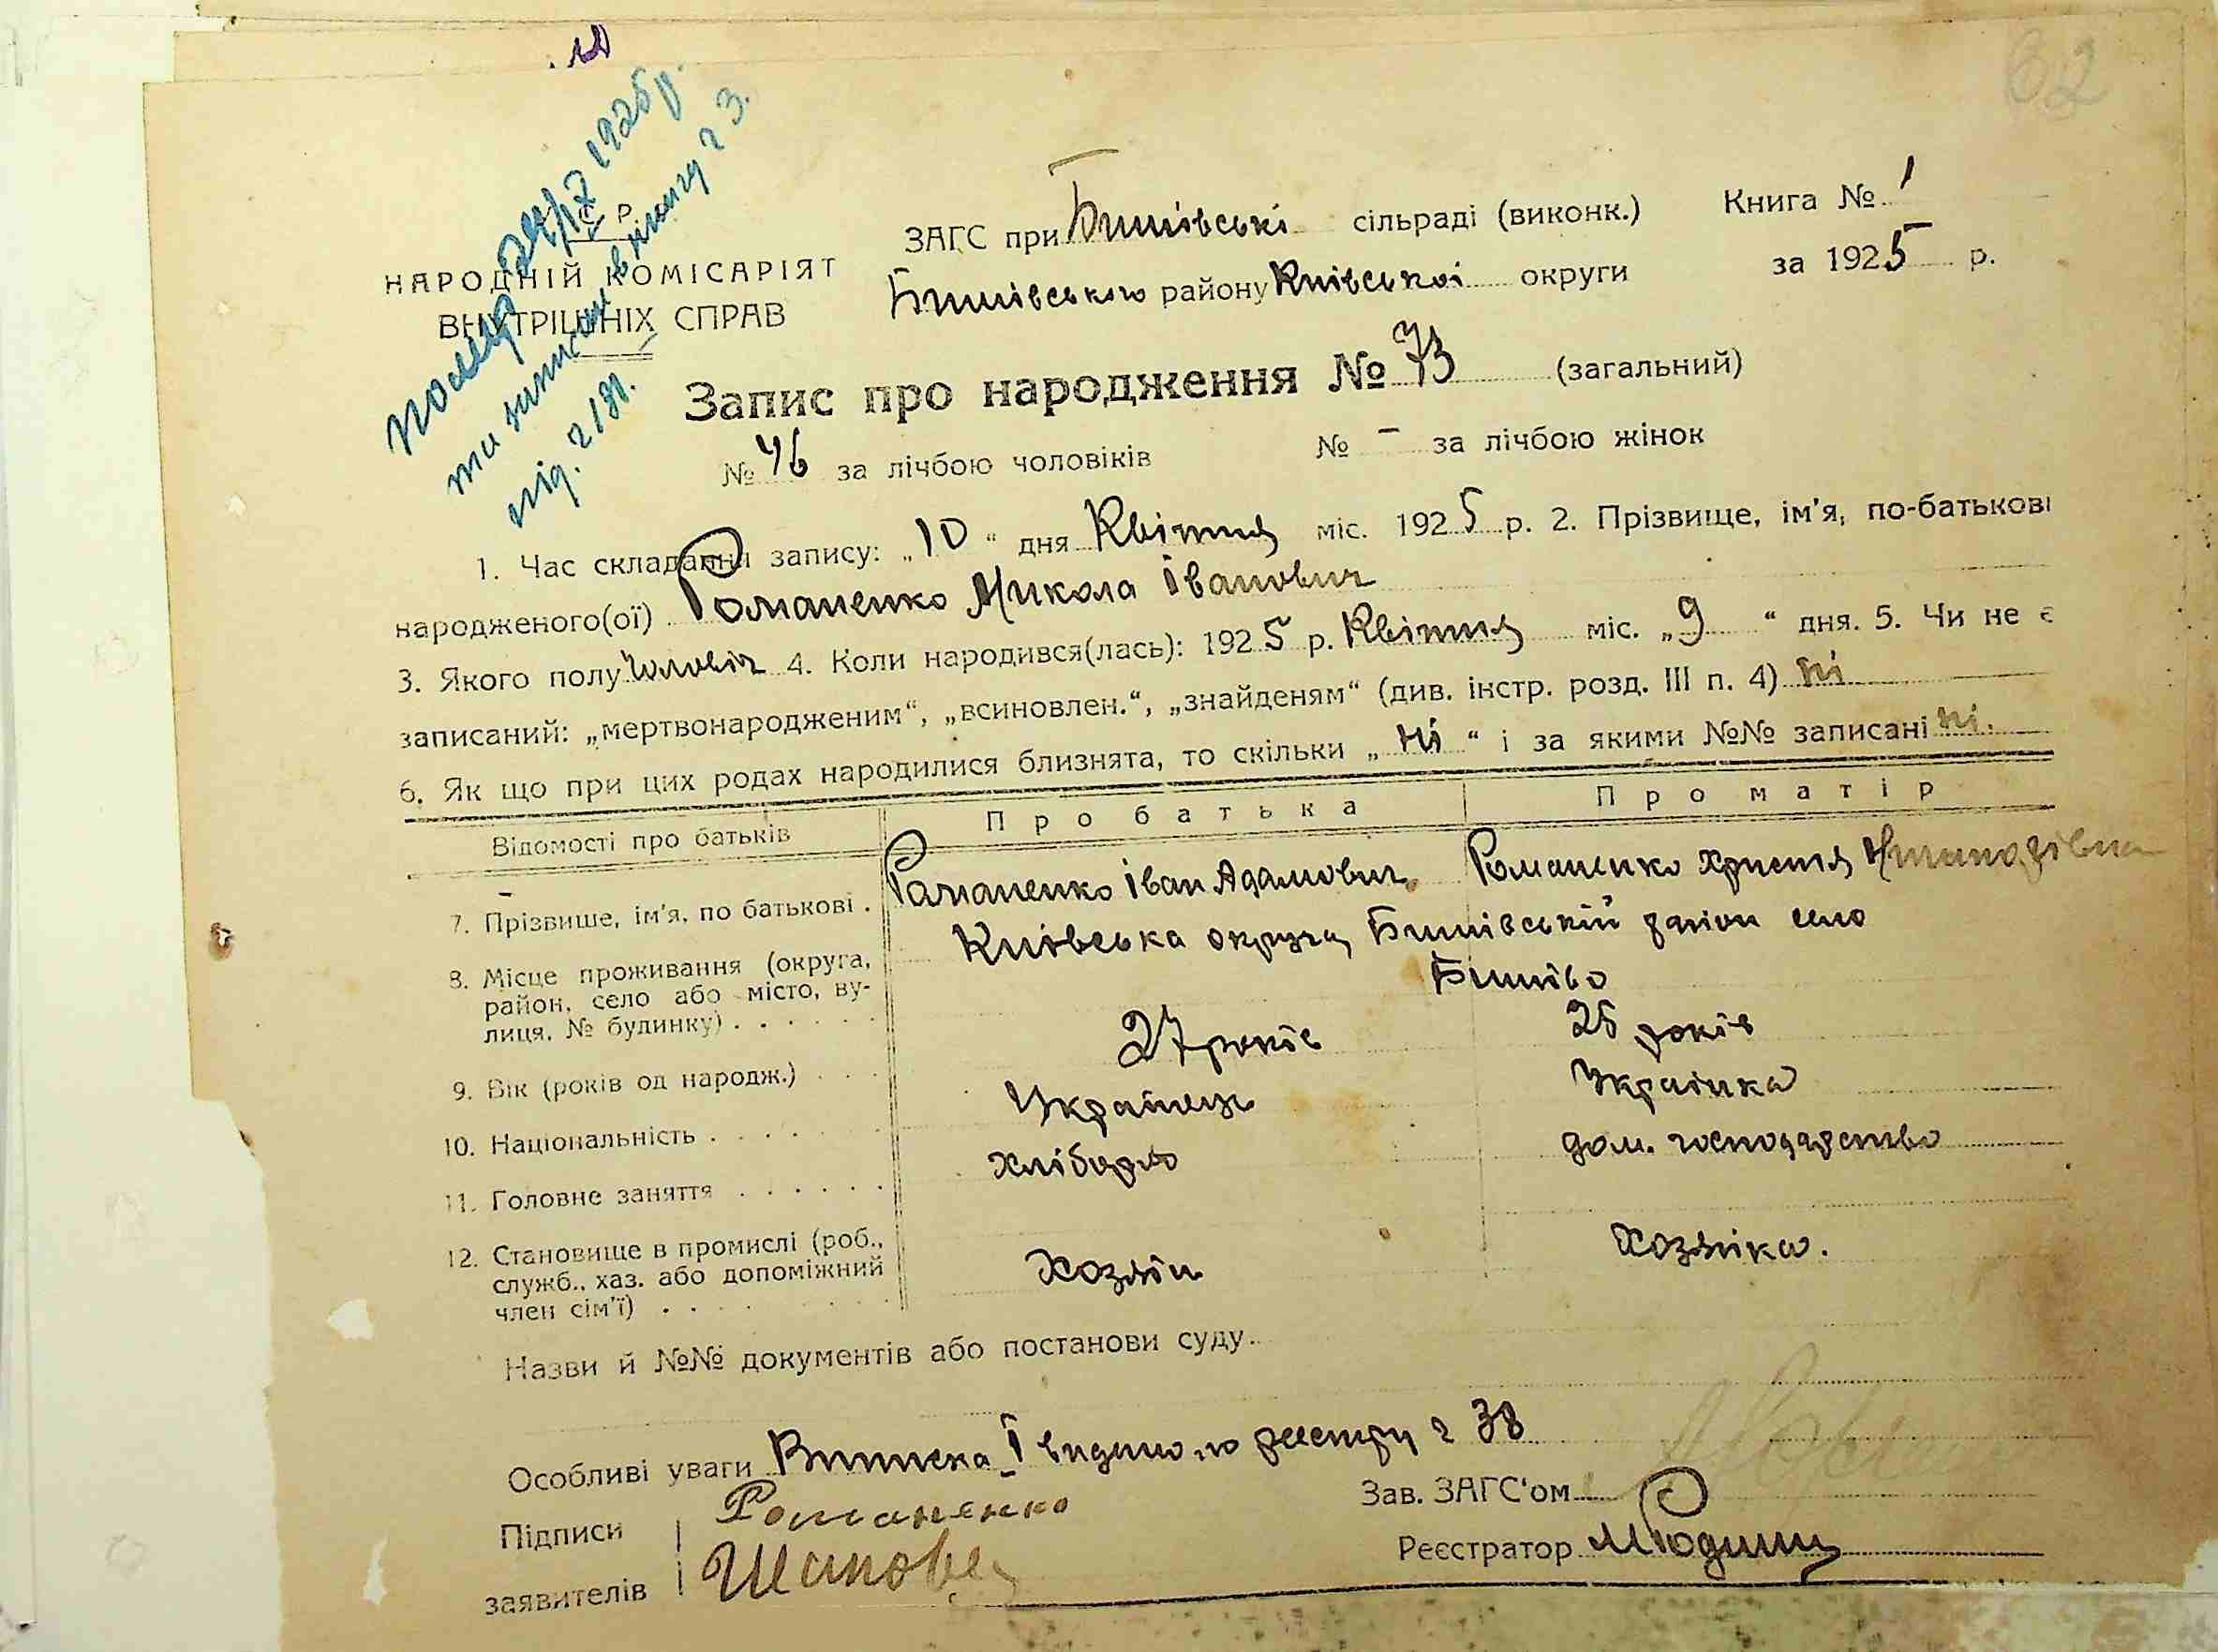 62
помер 24/IX 1925 р.
та записан в книгу № 3.
під. № 181.
У. С. Р. Р.
НАРОДНІЙ КОМІСАРІЯТ
ВНУТРІШНІХ СПРАВ
ЗАГС при Бишівські сільраді (виконк.) Книга № 1
Бишівського району Київської округи за 1925 р.
Запис про народження № 73 (загальний)
№ 46 за лічбою чоловіків № – за лічбою жінок
1. Час складання запису: „10“ дня Квітня міс. 1925 р. 2. Прізвище, ім’я, по-батькові
народженого(ої) Романенко Микола Іванович
3. Якого полу чоловіч 4. Коли народився(лась): 1925 р. Квітня міс. „9“ дня. 5. Чи не є
записаний: „мертвонародженим“, „всиновлен.“, „знайденям“ (див. інстр. розд. III п. 4) ні
6. Як що при цих родах народилися близнята, то скільки „ні“ і за якими №№ записані ні.
Відомості про батьків Про батька Про матір
7. Прізвише, ім’я, по батькові . Романенко Іван Адамович Романенко Христя
8. Місце проживання (округа, Київська округа, Бишівський район село
район, село або місто, ву- Бишів
лиця, № будинку) . . . . . .
9. Вік (років од народж.) . . . 27 років 25 років
10. Національність . . . . . . . Українець Українка
11. Головне заняття . . . . . . хлібороб дом. господарство
12. Становище в промислі (роб.,
служб., хаз. або допоміжний Хозяін Хозяіка.
член сім’ї) . . . . . . . .
Назви й №№ документів або постанови суду
Особливі уваги Виписка І видано по реестру № 38
Підписи Романенко Зав. ЗАГС’ом
заявителів Реєстратор